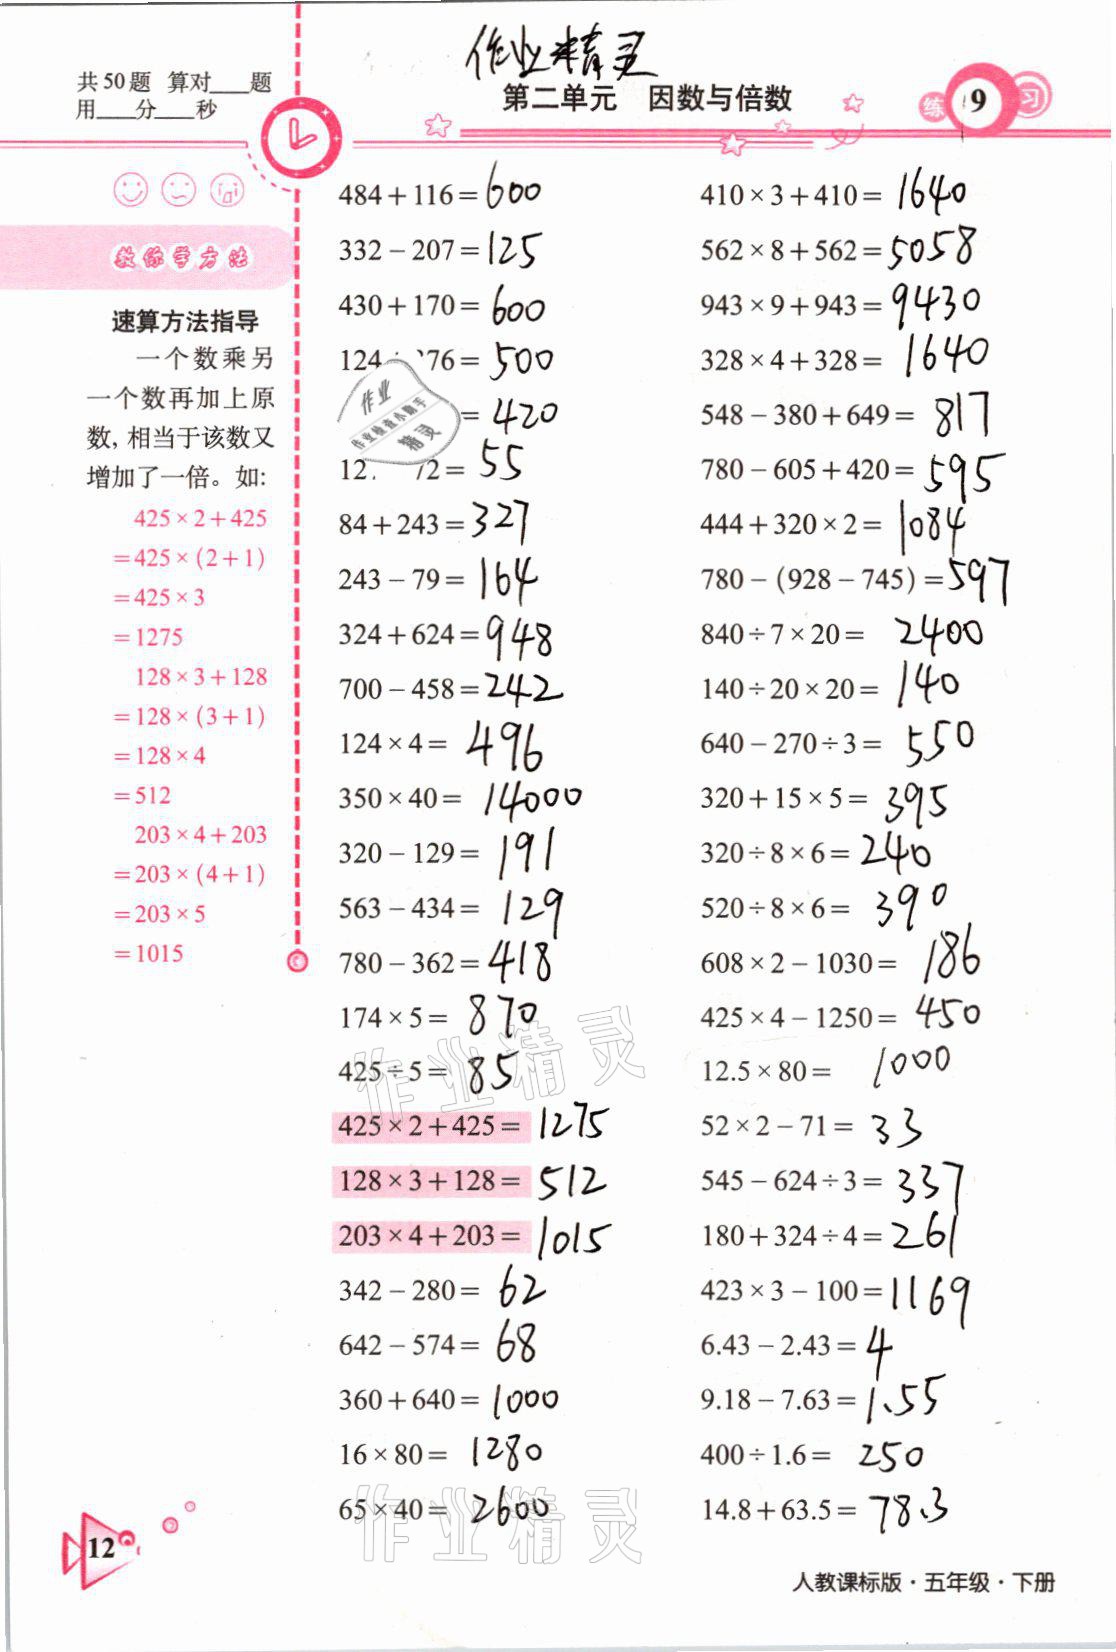 作业精灵
共50题 算对___题
用___分___秒
第二单元 因数与倍数
练 9 习
教你学方法
速算方法指导
一个数乘另
一个数再加上原
数,相当于该数又
增加了一倍。如:
425×2+425
=425×(2+1)
=425×3
=1275
128×3+128
=128×(3+1)
=128×4
=512
203×4+203
=203×(4+1)
=203×5
=1015
484+116=600
332-207=125
430+170=600
124 76=500
=420
12 72=55
84+243=327
243-79=164
324+624=948
700-458=242
124×4=496
350×40=14000
320-129=191
563-434=129
780-362=418
174×5=870
425÷5=85
425×2+425=1275
128×3+128=512
203×4+203=1015
342-280=62
642-574=68
360+640=1000
16×80=1280
65×40=2600
410×3+410=1640
562×8+562=5058
943×9+943=9430
328×4+328=1640
548-380+649=817
780-605+420=595
444+320×2=1084
780-(928-745)=597
840÷7×20=2400
140÷20×20=140
640-270÷3=550
320+15×5=395
320÷8×6=240
520÷8×6=390
608×2-1030=186
425×4-1250=450
12.5×80=1000
52×2-71=33
545-624÷3=337
180+324÷4=261
423×3-100=1169
6.43-2.43=4
9.18-7.63=1.55
400÷1.6=250
14.8+63.5=78.3
作业
作业检查小助手
精灵
作业精灵
作业精灵
12
人教课标版·五年级·下册